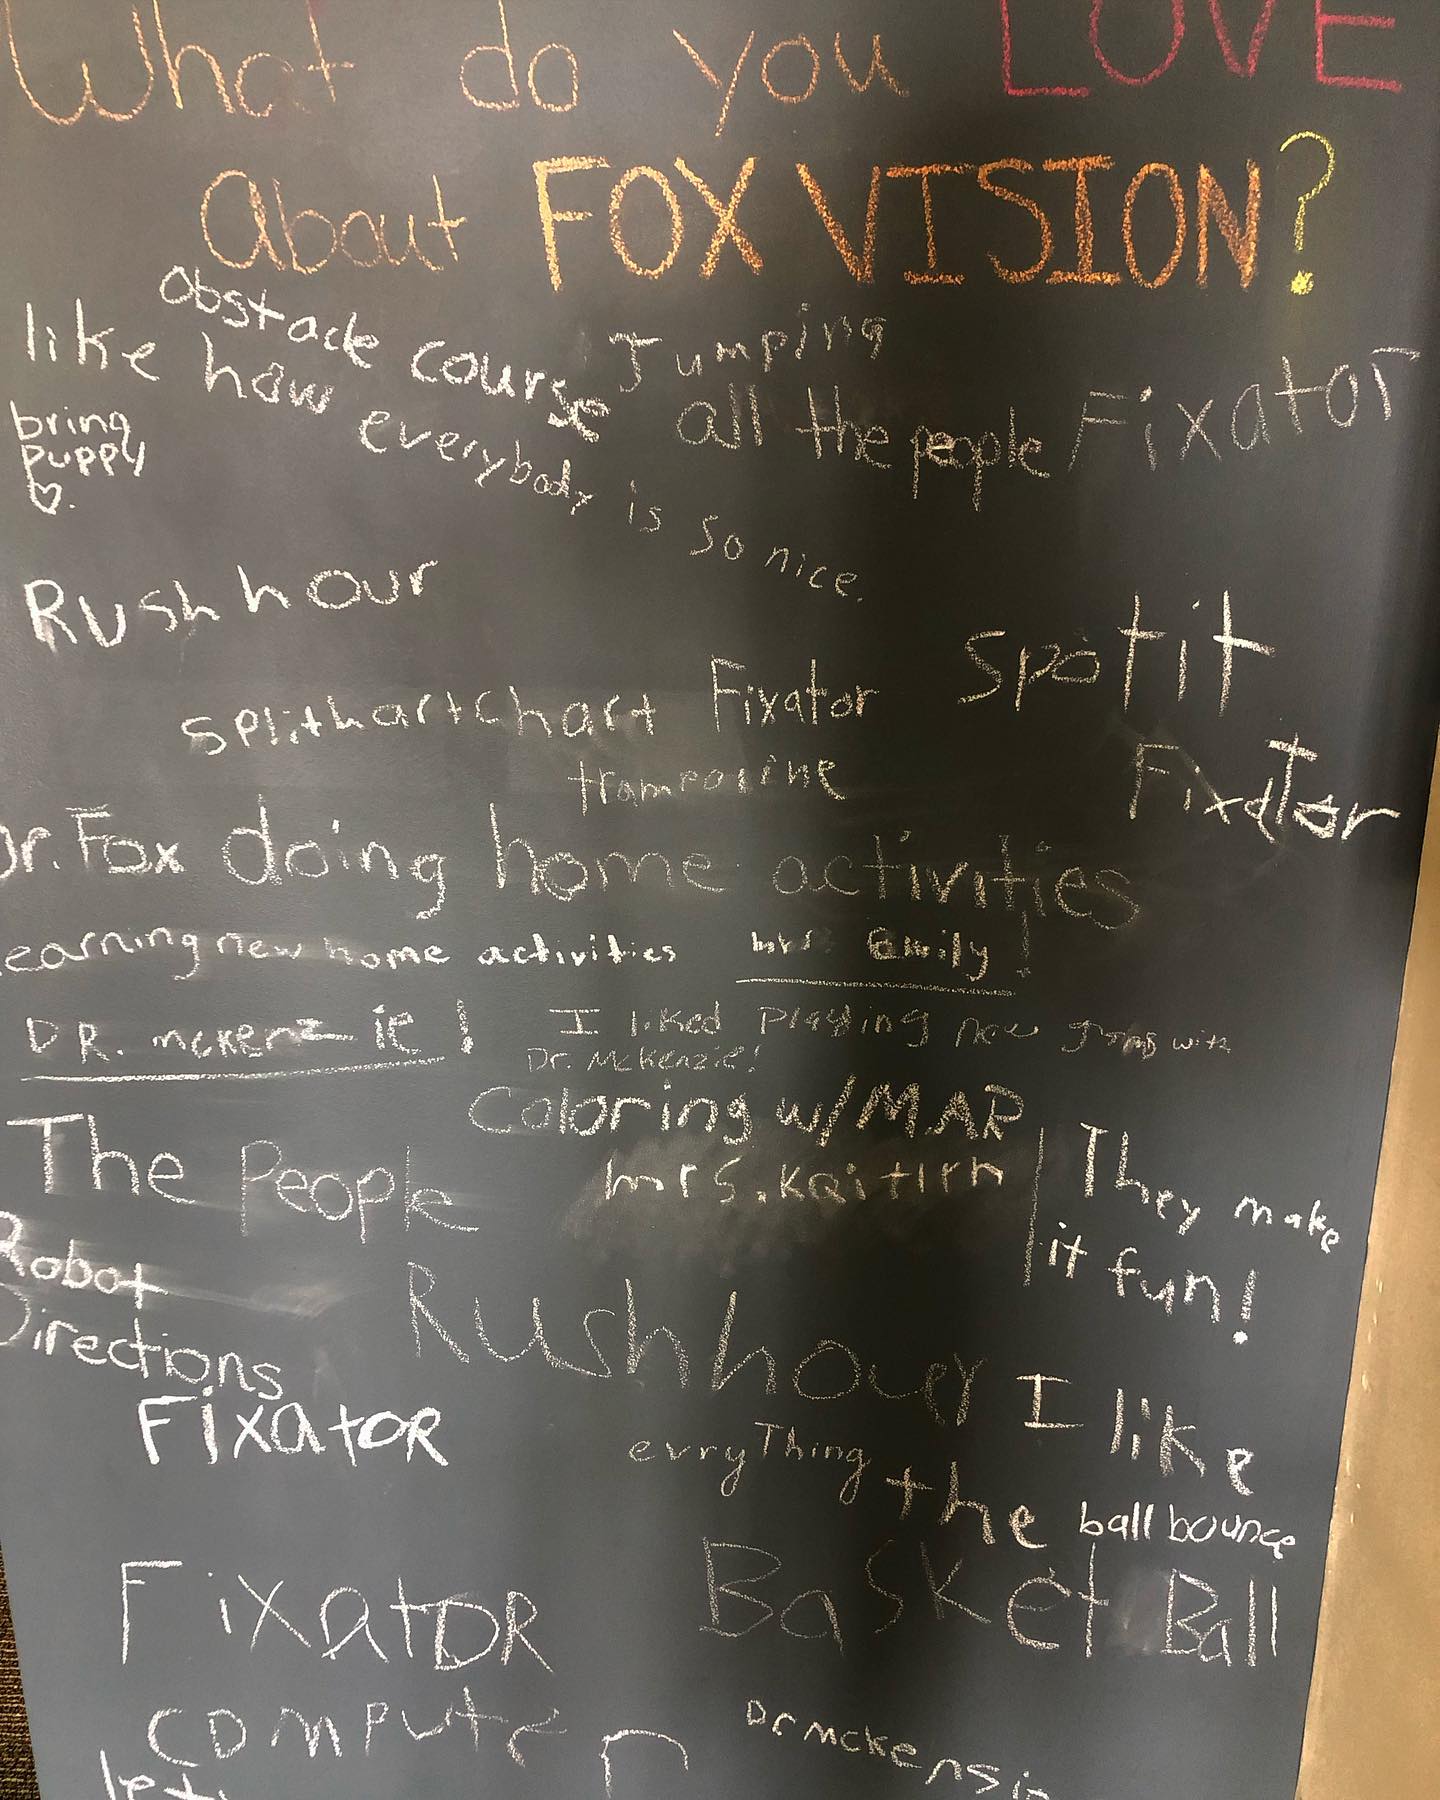 What do you LOVE
about FOX VISION?
obstacle course
Jumping
like how everybody is so nice.
all the people
Fixator
bring
puppy
♡.
Rush hour
Spotit
splithartchart
Fixator
trampoline
Fixator
Dr. Fox doing home activities
Learning new home activities
Emily!
DR. mckenzie!
I liked playing new games with
Dr. McKenzie!
Coloring w/ MAR
The People
mrs. Kaitlin
They make
it fun!
Robot
Directions
Rushhouer
Fixator
I like
evryThing
the
ball bounce
FixatOR
BasketBall
computer
Dr mckensie